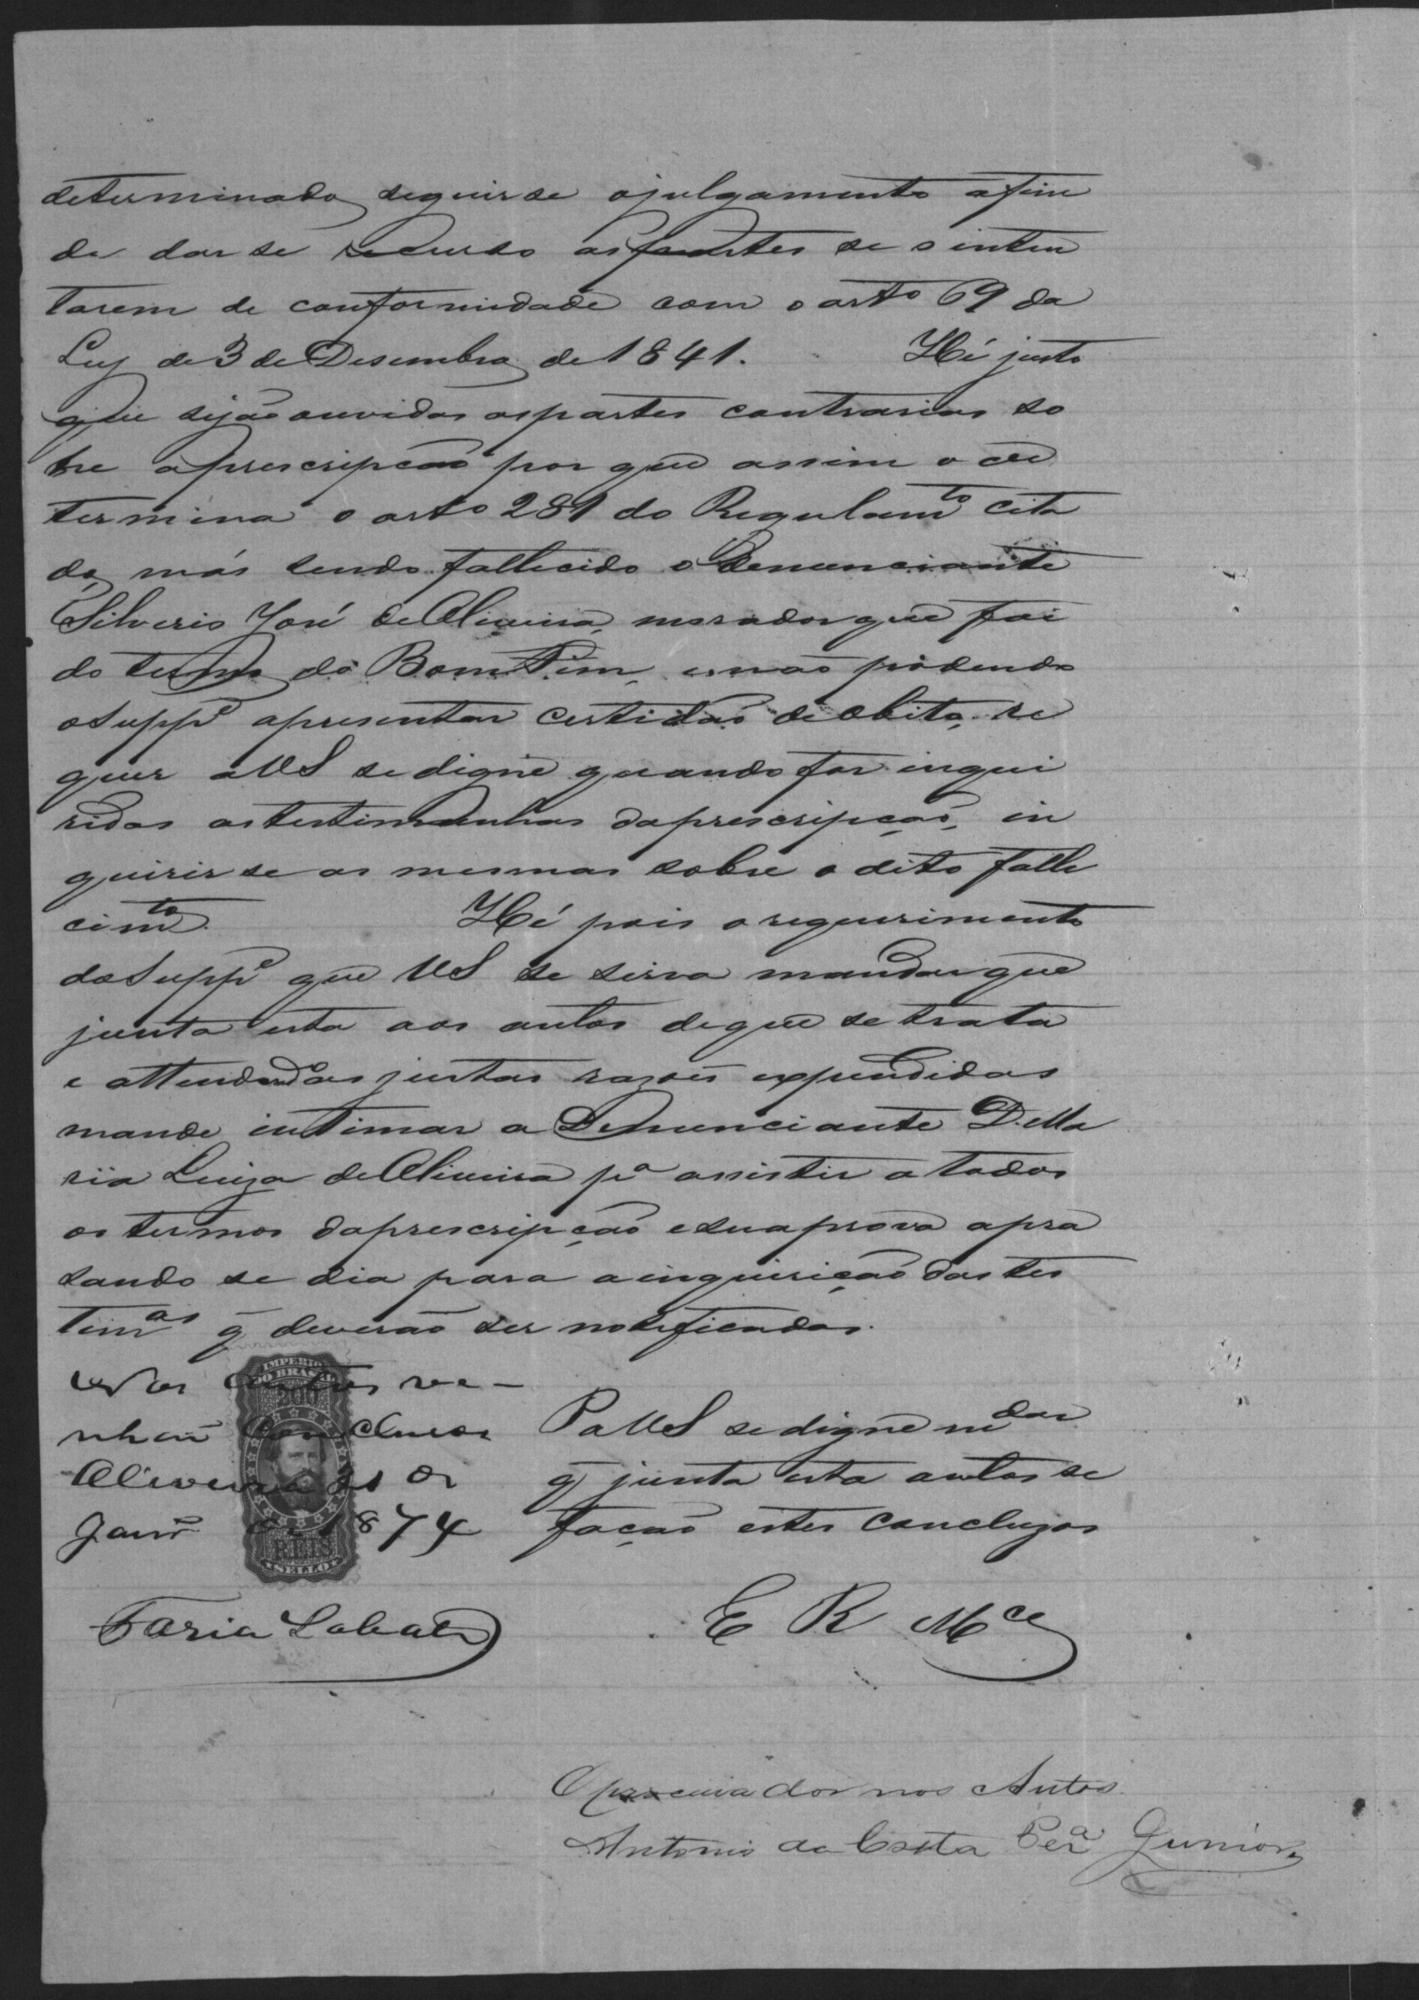 determinado seguir se o julgamento afim
de dar se recurso as partes se o inten
tarem de conformidade com o artº 69 da
Ley de 3 de Desembro de 1841. Hé justo
que sejão ouvidas as partes contrarias so
bre a prescripção por que assim o de
termina o artº 281 do Regulamto cita
do, más sendo fallecido o Denunciante
Silverio José de Oliveira, morador que foi
do termo do Bom Fim, e não podendo
o Suppe apresentar certidão de obito, re
quer a VS se digne quando for inqui
ridas as testimunhas da prescripção, in
quirir se as mesmas sobre o dito falle
cimto. Hé pois o requerimento
do Suppe que VS se sirva mandar que
junta esta aos autos de que se trata
e attendendo as justas rasões expendidas
mande intimar a Denunciante D. Ma
ria Luiza de Oliveira pa assistir a todos
os termos da prescripção e sua prova apra
sando se dia para a inquirição das tes
timas q̃ deverão ser notificadas.
Nos autos ve-
nhão conclusos
Oliveira 31 de
Janro de 1874
Faria Lobato
IMPERIO
DO BRASIL
200
REIS
SELLO
P a VS se digne mdar
q̃ junta esta autos se
fação estes concluzos
E R Mce
O procurador nos Autos
Antonio da Costa Pera Junior